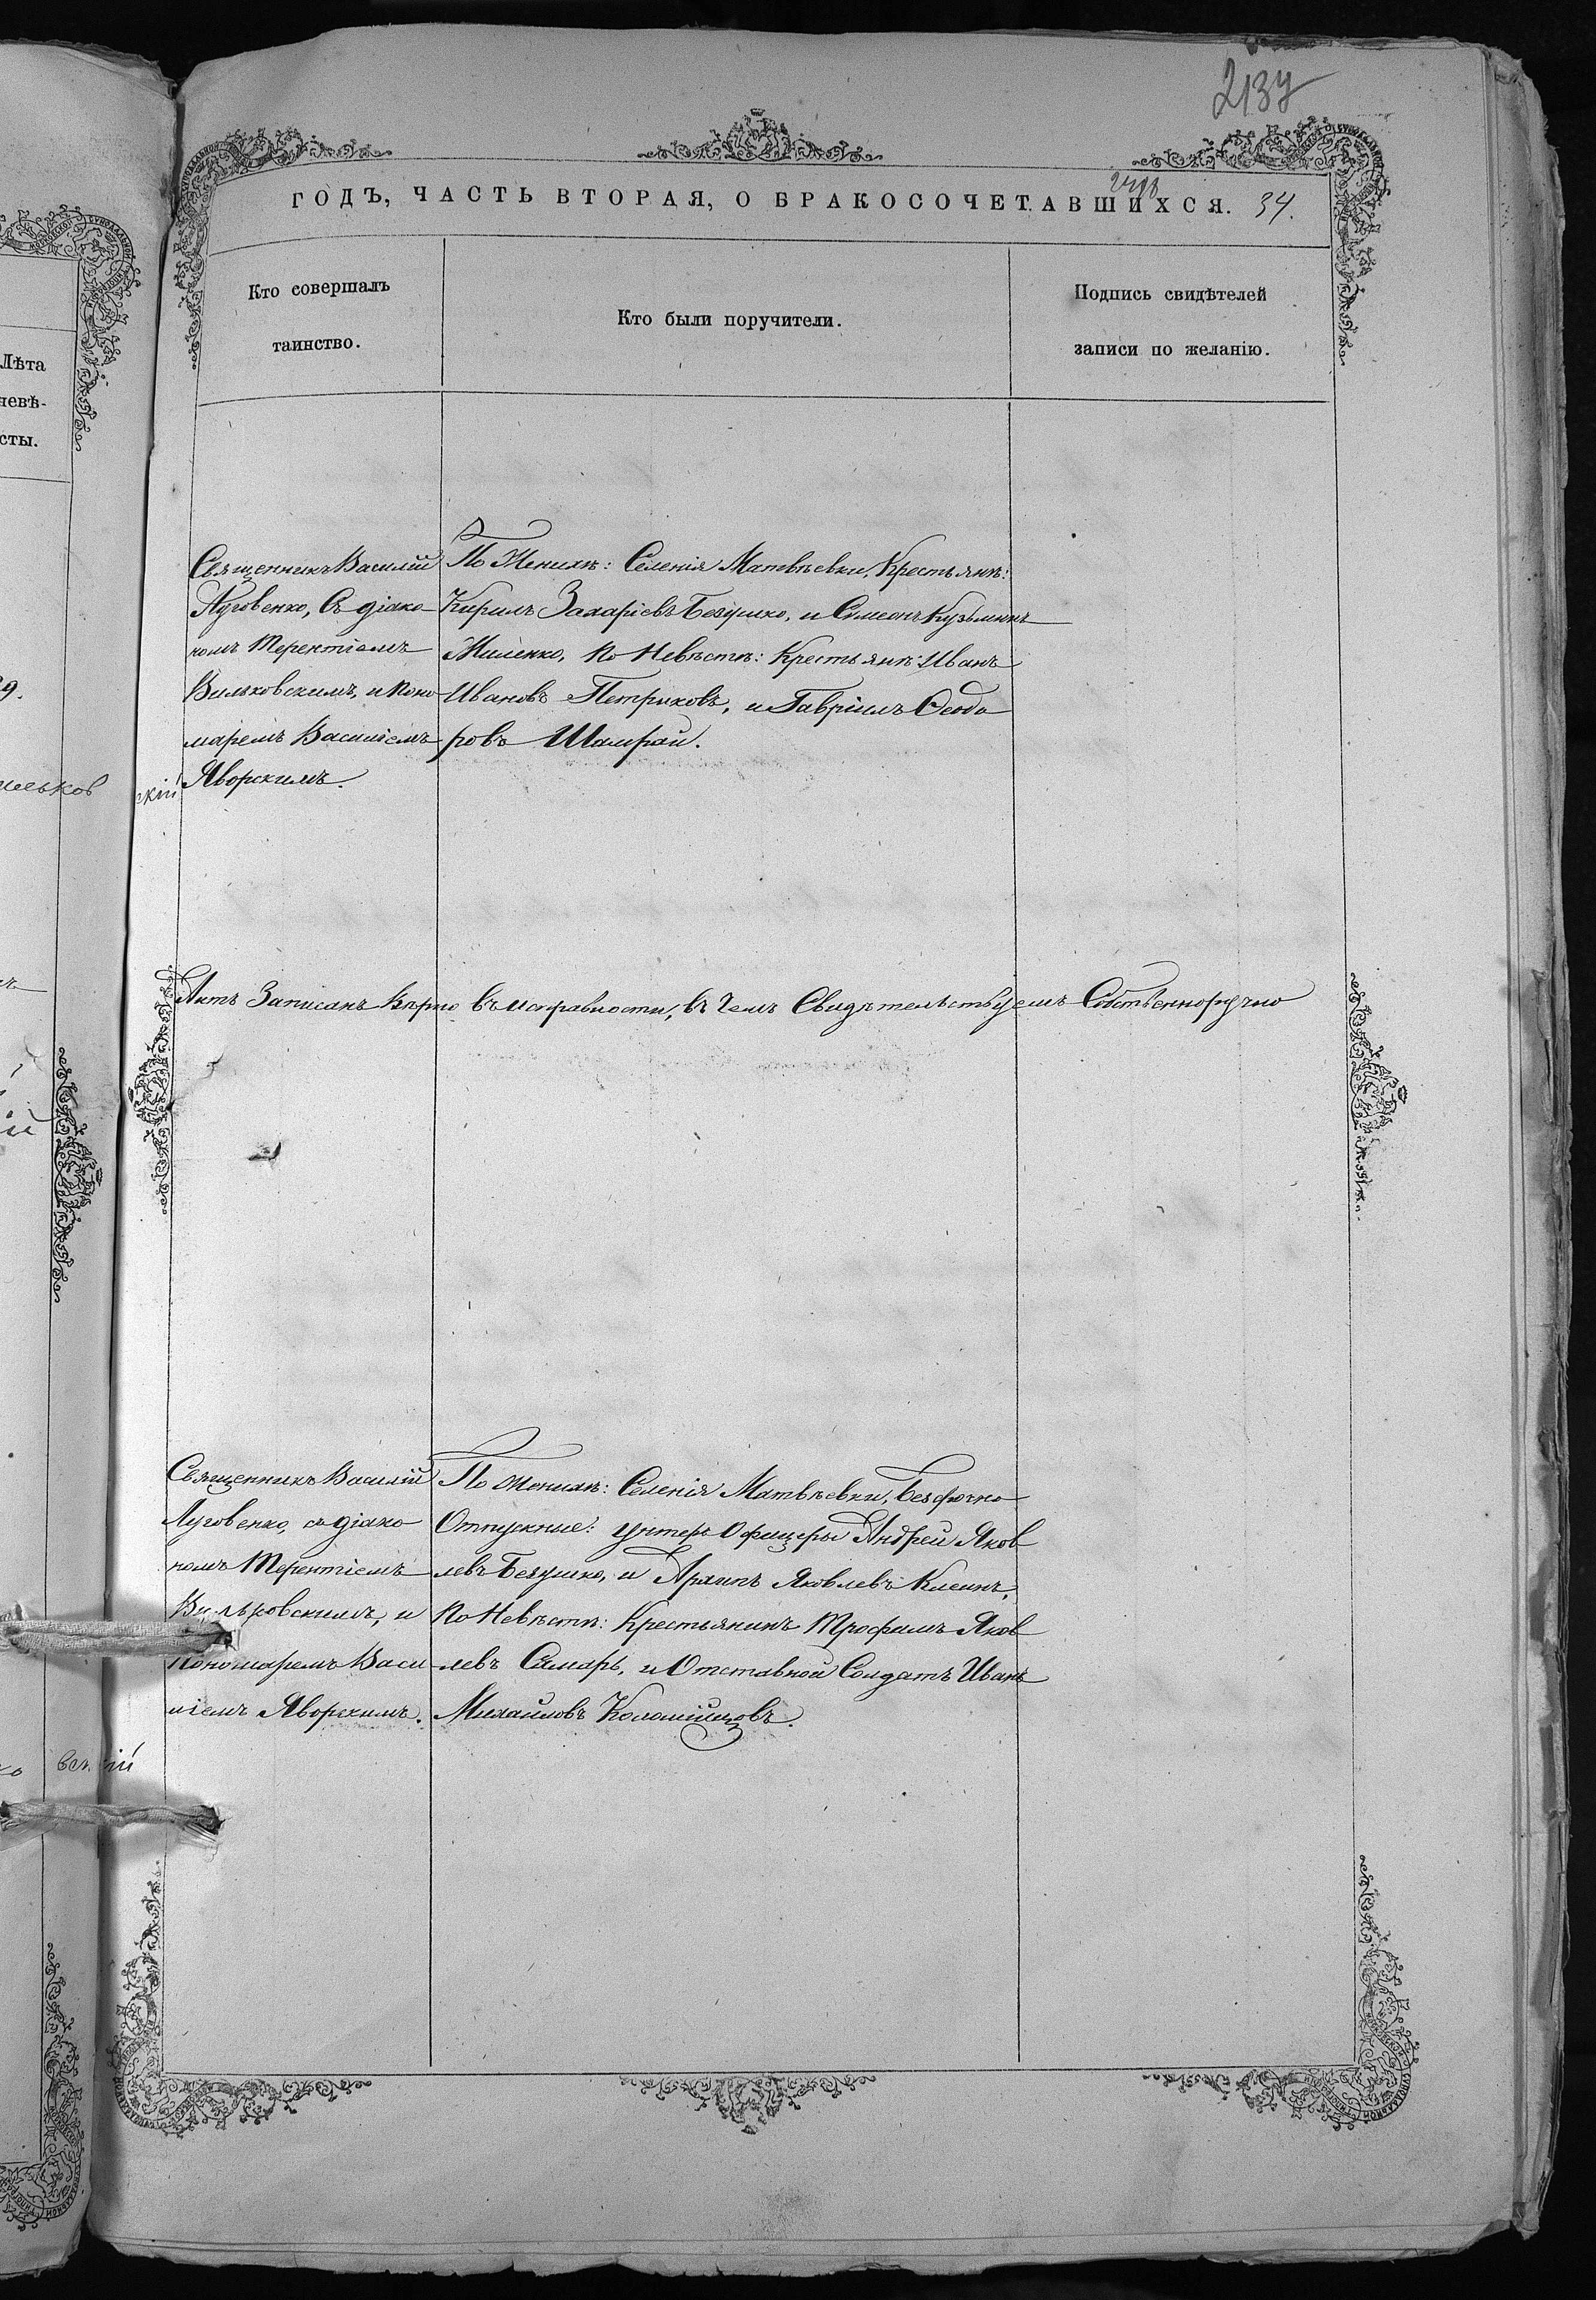 ГОДЪ, ЧАСТЬ ВТОРАЯ, О БРАКОСОЧЕТАВШИХСЯ. 34.
Кто совершалъ
таинство.
Кто были поручители.
Подпись свидѣтелей
записи по желанію.
Лѣта
невѣ-
сты.
Священникъ Василій
Луговенко, Съ діако
номъ Терентіемъ
Вильковскимъ, и Поно
маремъ Василіемъ
Яворскимъ.
По Женихѣ: Селенія Матвѣевки, Крестьянѣ:
Кирилъ Захаріевъ Безушко, и Симеонъ Кузьминъ
Миленко, По Невѣстѣ: Крестьянѣ: Иванъ
Ивановъ Петриковъ, и Гавріилъ Ѳеодо
ровъ Шамрай.
Актъ Записанъ Вѣрно въ исправности, въ Чемъ Свидѣтельствуемъ Собственноручно
Священникъ Василій
Луговенко, съ діако
номъ Терентіемъ
Вильковскимъ, и
Пономаремъ Васи
ліемъ Яворскимъ.
По Женихѣ: Селенія Матвѣевки, Безсрочно
Отпускные: Унтеръ Офицеры Андрей Яков
левъ Безушко, и Архипъ Яковлевъ
По Невѣстѣ: Крестьянинъ Трофимъ Яков
левъ Самарь, и Отставной Солдатъ Иванъ
Михайловъ Коломійцовъ.